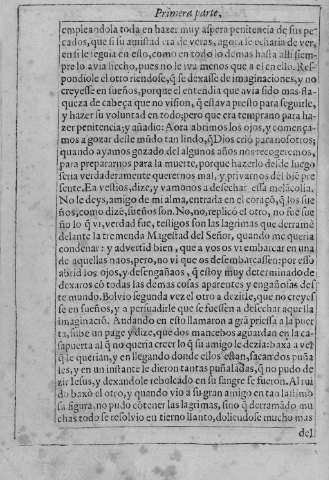 Primera parte,
empleandola toda en hazer muy aspera penitencia de sus pe-
cados, que si su amistad era de veras, agora le echaria de ver,
en si le seguia en esto, como en todo lo demas hasta alli siem-
pre lo avia hecho, pues no le iva menos que a el en ello. Res-
pondiole el otro riendose, q̃ se dexasse de imaginaciones, y no
creyesse en sueños, porque el entendia que avia sido mas fla-
queza de cabeça que no vision, q̃ estava presto para seguirle,
y hazer su voluntad en todo; pero que era temprano para ha-
zer penitencia; y añadio: Aora abrimos los ojos, y comença-
mos a gozar deste mũdo tan lindo, q̃ Dios crió para nosotros;
quando ayamos gozado del algunos años nos recogeremos,
para prepararnos para la muerte, porque hazerlo desde luego
seria verdaderamente querernos mal, y privarnos del biẽ pre
sente. Ea vestios, dize, y vamonos a desechar essa melãcolia.
No le deys, amigo de mi alma, entrada en el coraçõ, q̃ los sue
ños, como dizẽ, sueños son. No, no, replicó el otro, no fuè sue
ño lo q̃ vi, verdad fuè, testigos son las lagrimas que derramè
delante la tremenda Magestad del Señor, quando me queria
condenar: y advertid bien, que a vos os vi embarcar en una
de aquellas naos, pero, no vi que os desembarcassen: por esso
abrid los ojos, y desengañaos, q̃ estoy muy determinado de
dexaros cõ todas las demas cosas aparentes y engañosas des
te mundo. Bolvio segunda vez el otro a dezirle, que no creyes
se en sueños, y a persuadirle que se fuessen a desechar aquella
imaginació. Andando en esto llamaron a grã priessa a la puer
ta, sube un page y dize, que dos mancebos aguardan en la ca-
sapuerta al q̃ no queria creer lo q̃ su amigo le dezia: baxa a ver
q̃ le querian, y en llegando donde ellos estan, sacan dos puña
les, y en un instante le dieron tantas puñaladas, q̃ no pudo de
zir Iesus, y dexandole rebolcado en su sangre se fueron. Al rui
do baxó el otro, y quando vio a su gran amigo en tan lastimo
sa figura, no pudo cõtener las lagrimas, sino q̃ derramãdo mu
chas todo se resolvio en tierno llanto, doliendose mucho mas
del